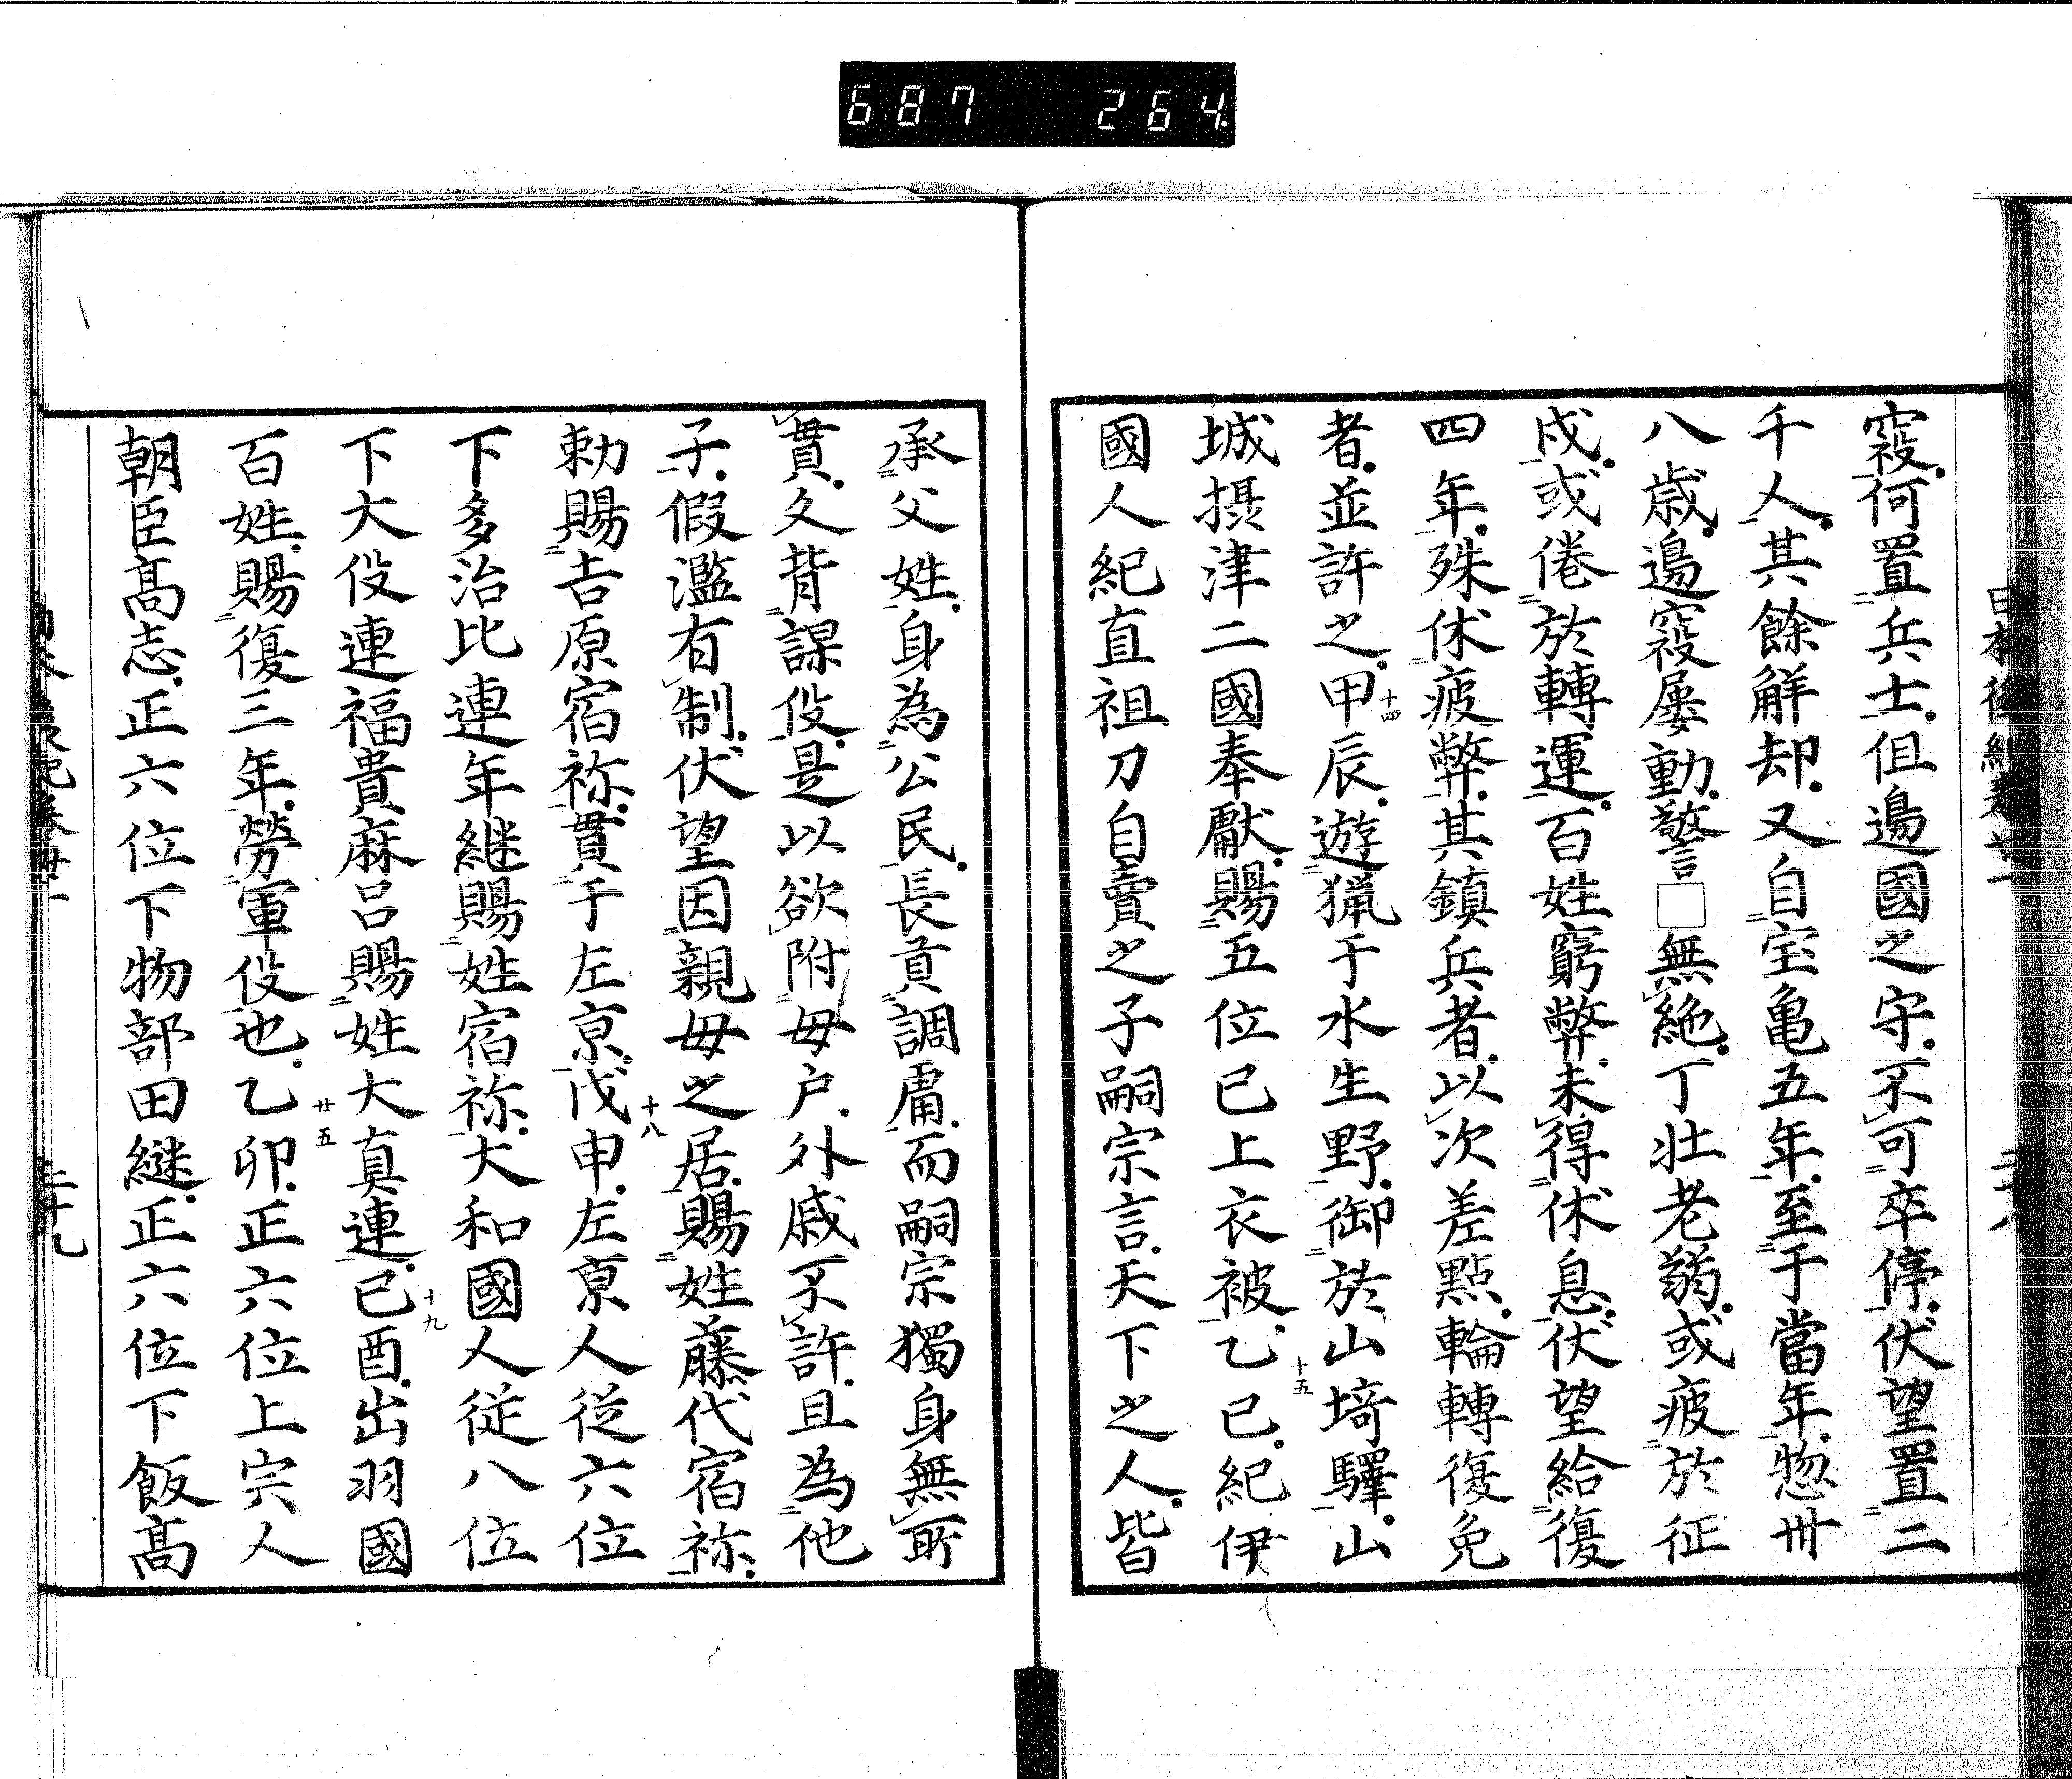 687 264
日本後紀卷廿一 二十八
寇何置兵士但邊國之守不可卒停伏望置二
千人其餘解却又自宝亀五年至于當年惣卅
八歳邊寇屡動警□無絶丁壮老弱或疲於征
戍或倦於轉運百姓窮弊未得休息伏望給復
四年殊休疲弊其鎮兵者以次差點輪轉復免
者並許之甲辰遊猟于水生野御於山埼驛山
十四
城摂津二國奉獻賜五位已上衣被乙巳紀伊
十五
國人紀直祖刀自賣之子嗣宗言天下之人皆
承父姓身為公民長貢調庸而嗣宗獨身無所
貫久背課役是以欲附母户外戚不許且為他
子假濫有制伏望因親母之居賜姓藤代宿祢
勅賜吉原宿祢貫于左京戊申左京人従六位
十八
下多治比連年継賜姓宿祢大和國人従八位
下大役連福貴麻呂賜姓大真連己酉出羽國
十九
百姓賜復三年勞軍役也乙卯正六位上宍人
廿五
朝臣髙志正六位下物部田継正六位下飯髙
日本後紀卷廿一 二十九